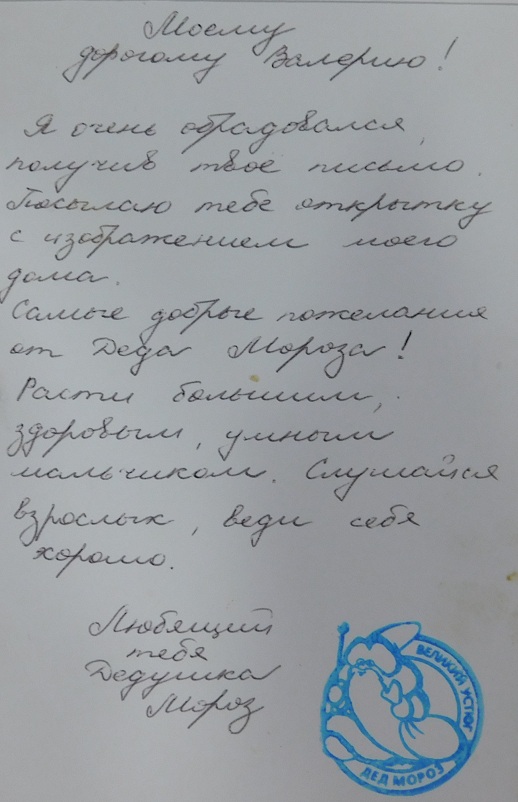 Моему
дорогому Валерию!
Я очень обрадовался,
получив твое письмо.
Посылаю тебе открытку
с изображением моего
дома.
Самые добрые пожелания
от Деда Мороза!
Расти большим,
здоровым, умным
мальчиком. Слушайся
взрослых, веди себя
хорошо.
Любящий
тебя
Дедушка
Мороз
ВЕЛИКИЙ УСТЮГ
ДЕД МОРОЗ